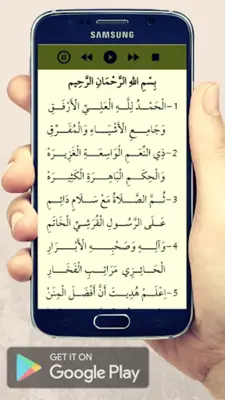 SAMSUNG
بِسْمِ اللهِ الرَّحْمَانِ الرَّحِيمِ
1- الْحَمْدُ لِلَّهِ الْعَلِيِّ الْأَرْفَقِ
وَجَامِعِ الْأَشْيَاءِ وَالْمُفَرِّقِ
2- ذِي النِّعَمِ الْوَاسِعَةِ الْغَزِيرَهْ
وَالْحِكَمِ الْبَاهِرَةِ الْكَثِيرَهْ
3- ثُمَّ الصَّلَاةُ مَعْ سَلَامٍ دَائِمِ
عَلَى الرَّسُولِ الْقُرَشِيِّ الْخَاتَمِ
4- وَآلِهِ وَصَحْبِهِ الْأَبْرَارِ
الْحَائِزِي مَرَاتِبِ الْفَخَارِ
5- اِعْلَمْ هُدِيتَ أَنَّ أَفْضَلَ الْمِنَنْ
GET IT ON
Google Play